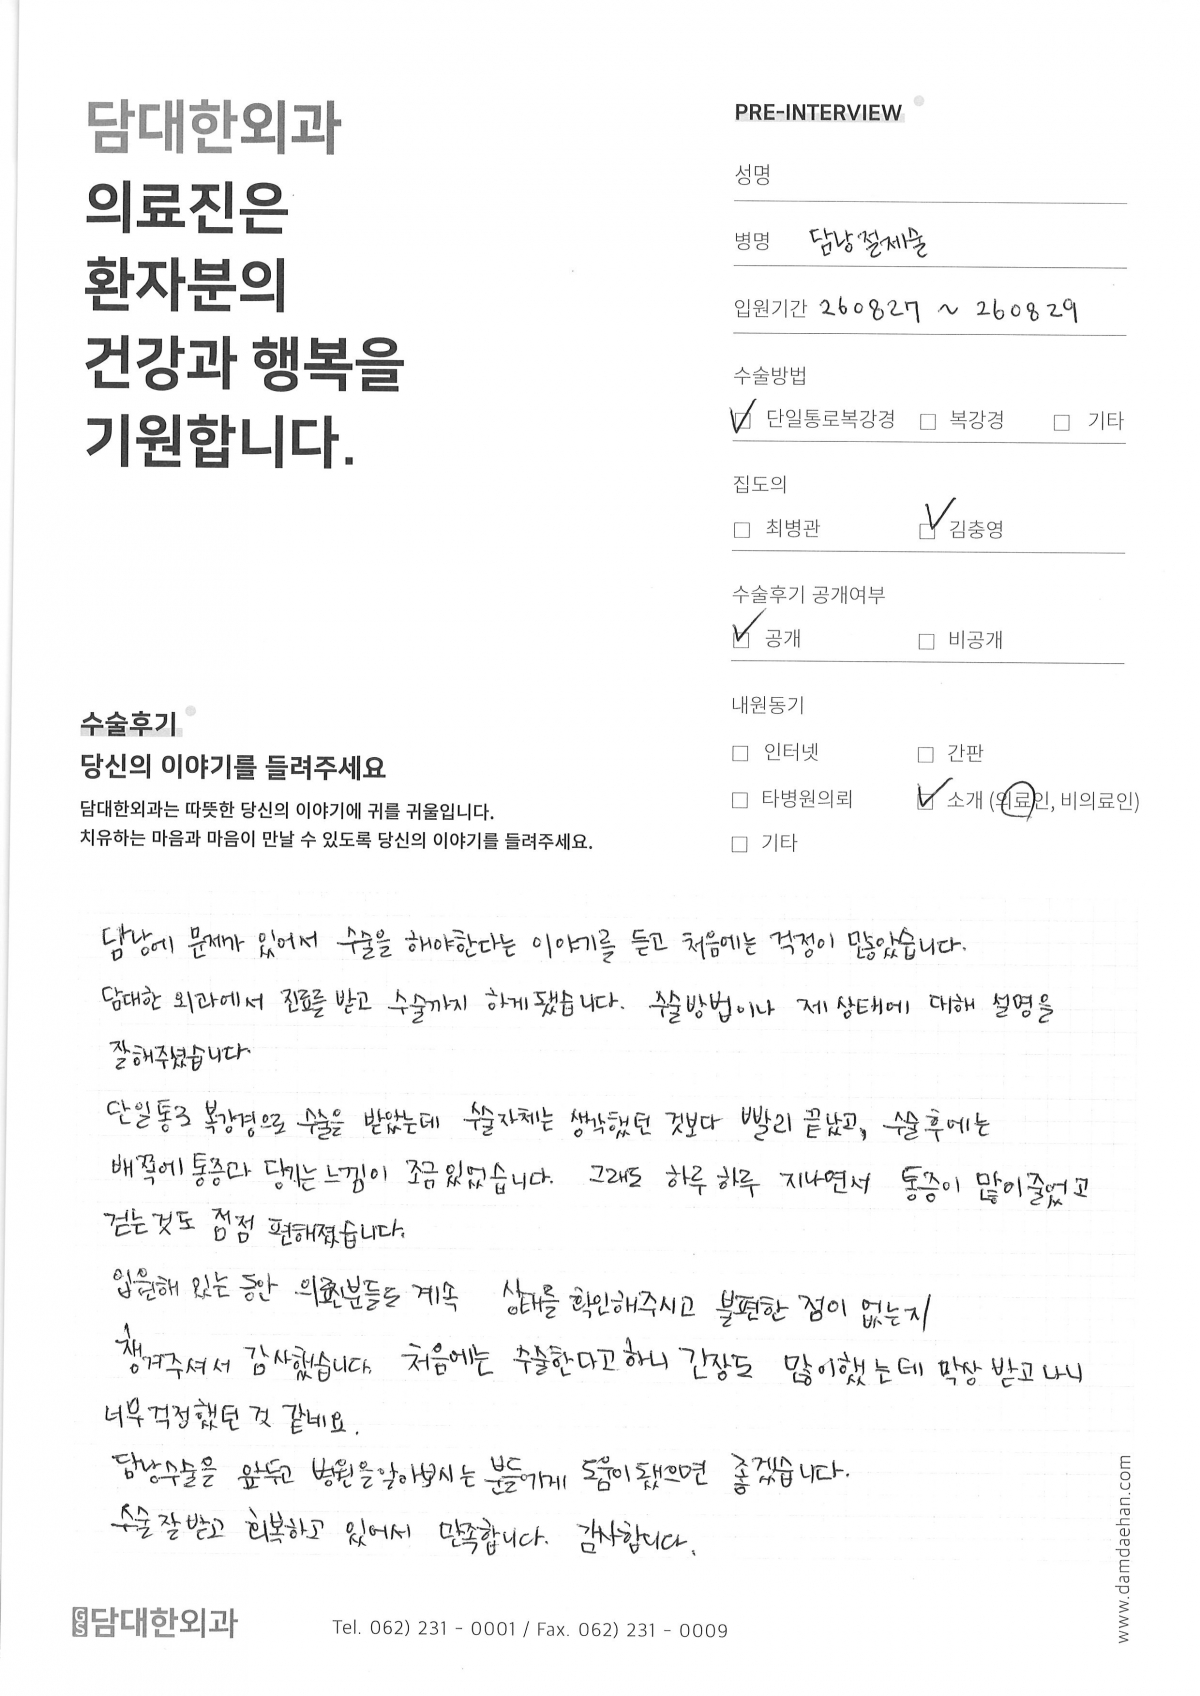 담대한외과
의료진은
환자분의
건강과 행복을
기원합니다.
PRE-INTERVIEW
성명
병명 담낭절제술
입원기간 260827 ~ 260829
수술방법
단일통로복강경 복강경 기타
집도의
최병관 김충영
수술후기 공개여부
공개 비공개
내원동기
인터넷 간판
타병원의뢰 소개 (의료인, 비의료인)
기타
수술후기
당신의 이야기를 들려주세요
담대한외과는 따뜻한 당신의 이야기에 귀를 귀울입니다.
치유하는 마음과 마음이 만날 수 있도록 당신의 이야기를 들려주세요.
담낭에 문제가 있어서 수술을 해야한다는 이야기를 듣고 처음에는 걱정이 많았습니다.
담대한 외과에서 진료를 받고 수술까지 하게됐습니다. 수술방법이나 제 상태에 대해 설명을
잘해주셨습니다
단일통로 복강경으로 수술을 받았는데 수술자체는 생각했던 것보다 빨리 끝났고, 수술후에는
배쪽에 통증과 당기는 느낌이 조금있었습니다. 그래도 하루하루 지나면서 통증이 많이줄었고
걷는것도 점점 편해졌습니다.
입원해 있는 동안 의료진분들도 계속 상태를 확인해주시고 불편한 점이 없는지
챙겨주셔서 감사했습니다. 처음에는 수술한다고하니 긴장도 많이했는데 막상 받고나니
너무걱정했던 것 같네요.
담낭수술을 앞두고 병원을알아보시는 분들에게 도움이됐으면 좋겠습니다.
수술잘받고 회복하고 있어서 만족합니다. 감사합니다.
GS 담대한외과
Tel. 062) 231 - 0001 / Fax. 062) 231 - 0009
www.damdaehan.com